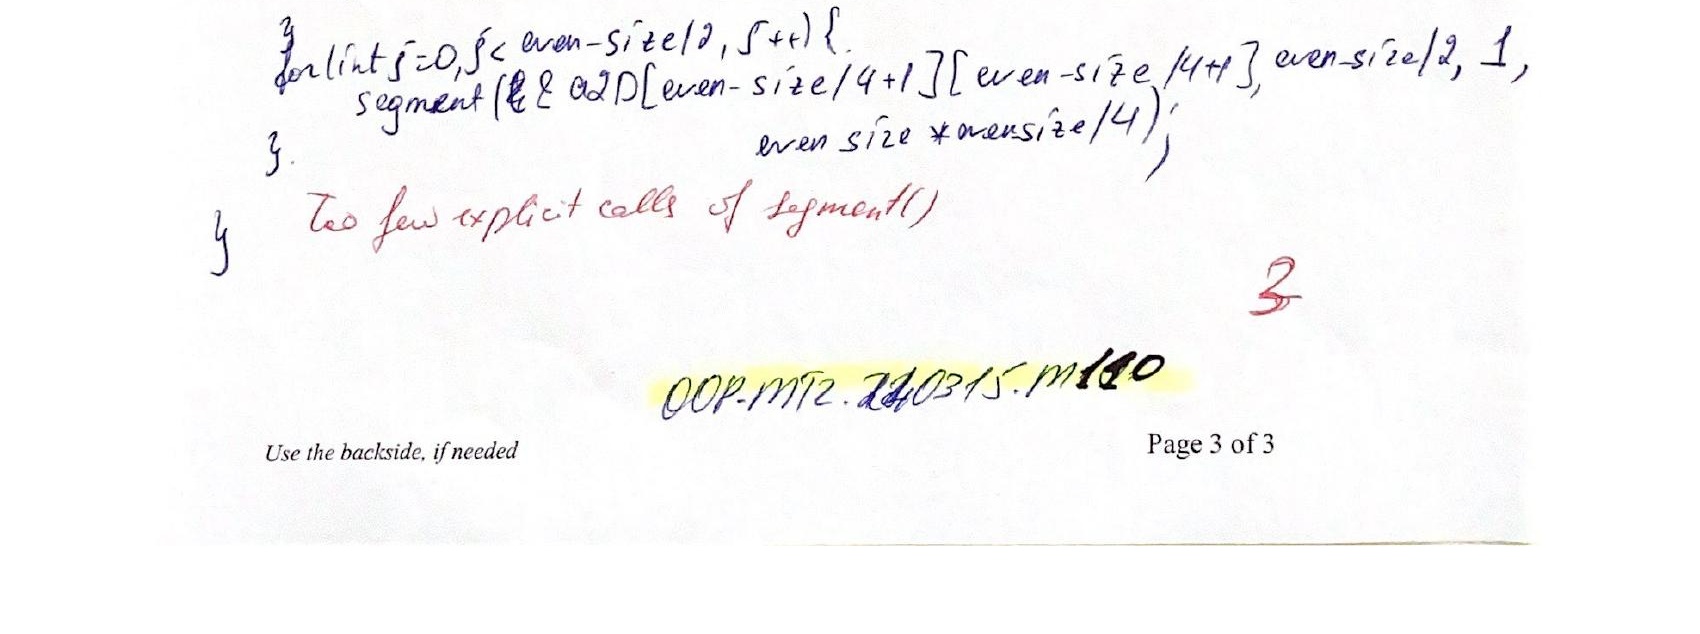 }
for(int j=0, j< even-size/2, j++) {
segment(& a2D[even-size/4+1][even-size/4+1], even-size/2, 1,
even size *evensize/4);
}
Too few explicit calls of segment()
}
3
OOP-MT2.220315.M110
Use the backside, if needed
Page 3 of 3